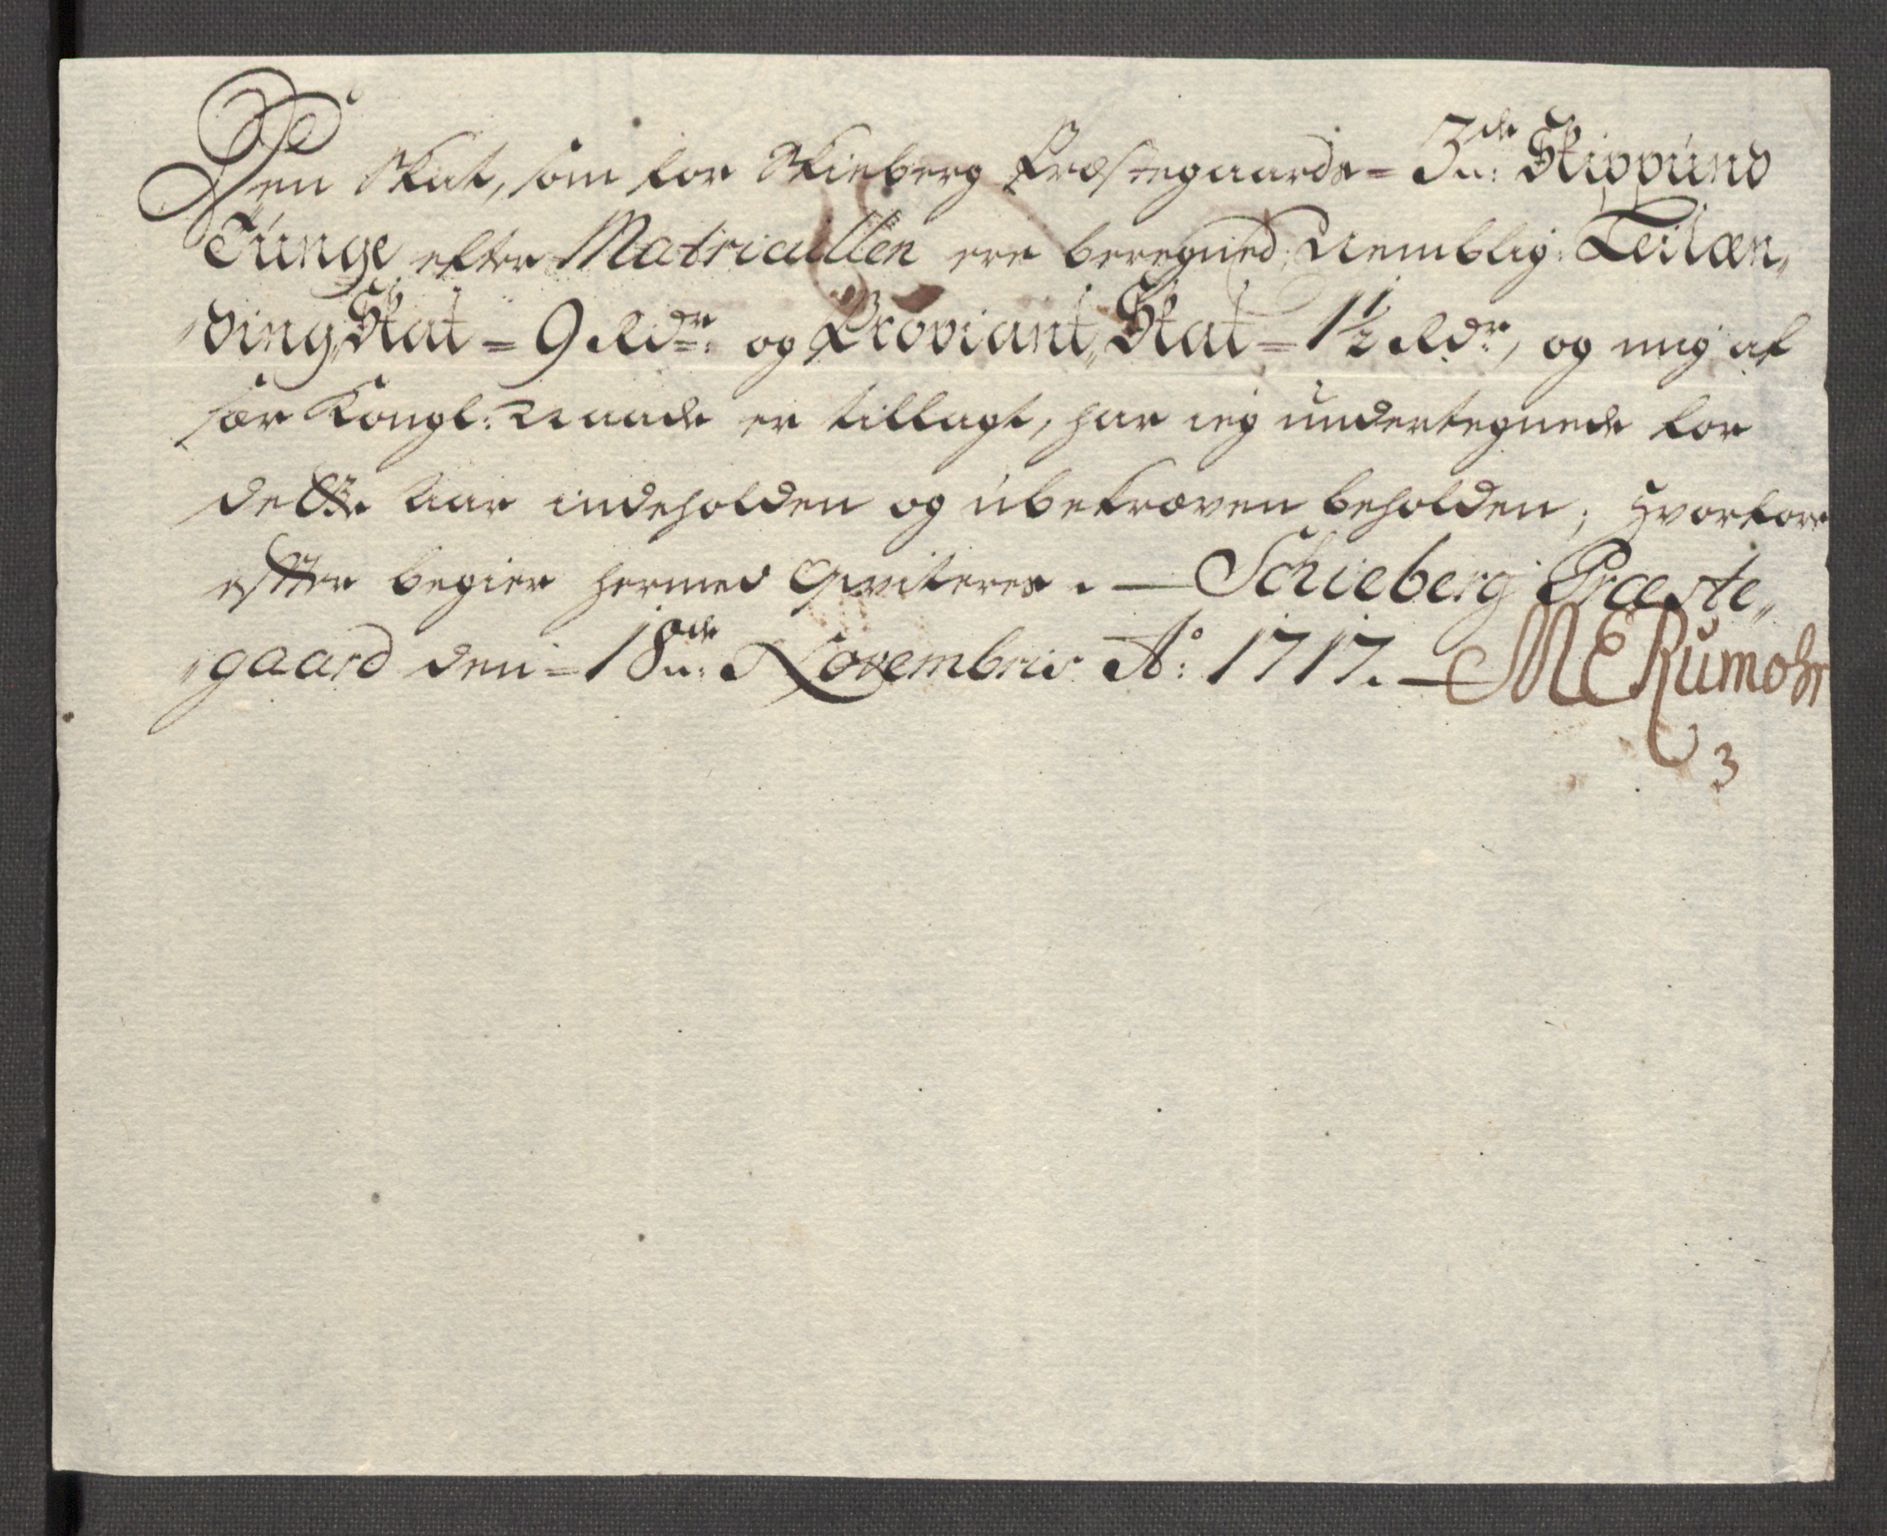 Den Skat, som for Skieberg Præstegaards = 3de Skippund
Tunge efter Matriculen ere beregned, Nemblig: Leilæn„
„ding„Skat = 9 Rdr: og Proviant„Skat = 1½ Rdr, og mig af
sær Kongl: Naade er tillagt, har ieg undertegnede for
dette Aar indeholden og ubekræven beholden; Hvorfore
efter begier hermed Qviteres. — Schieberg Præste„
„gaard den = 18de Novembris Ao: 1717. — MERumohr
3